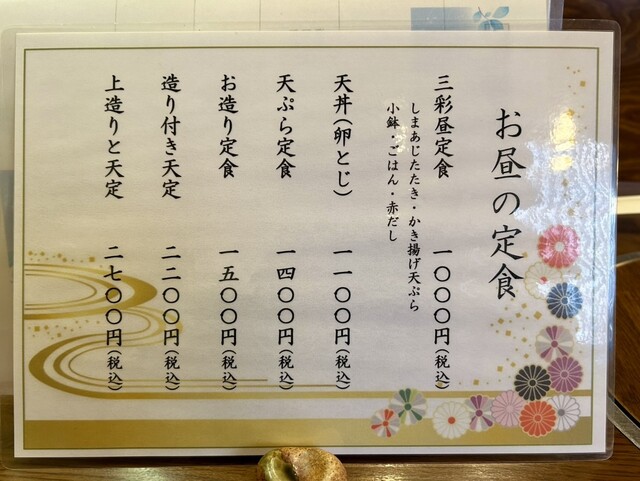 お昼の定食
三彩昼定食 一〇〇〇円(税込)
しまあじたたき・かき揚げ天ぷら
小鉢・ごはん・赤だし
天丼(卵とじ) 一一〇〇円(税込)
天ぷら定食 一四〇〇円(税込)
お造り定食 一五〇〇円(税込)
造り付き天定 二二〇〇円(税込)
上造りと天定 二七〇〇円(税込)